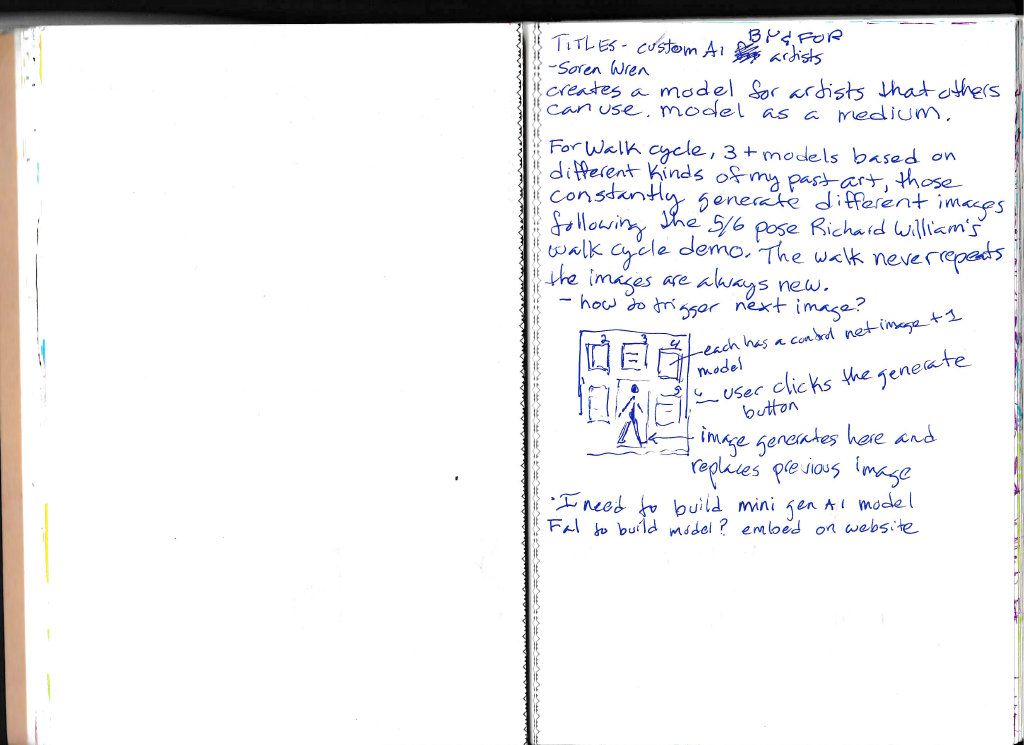 TITLES - custom AI BY & FOR artists
- Soren Wren
creates a model for artists that others
can use. model as a medium.
For Walk cycle, 3 + models based on
different kinds of my past art, those
constantly generate different images
following the 5/6 pose Richard William's
walk cycle demo. The walk never repeats
the images are always new.
- how to trigger next image?
2 3 4
each has a control net image + 1
model
1 5
user clicks the generate
button
image generates here and
replaces previous image
· I need to build mini gen AI model
Fal to build model? embed on website